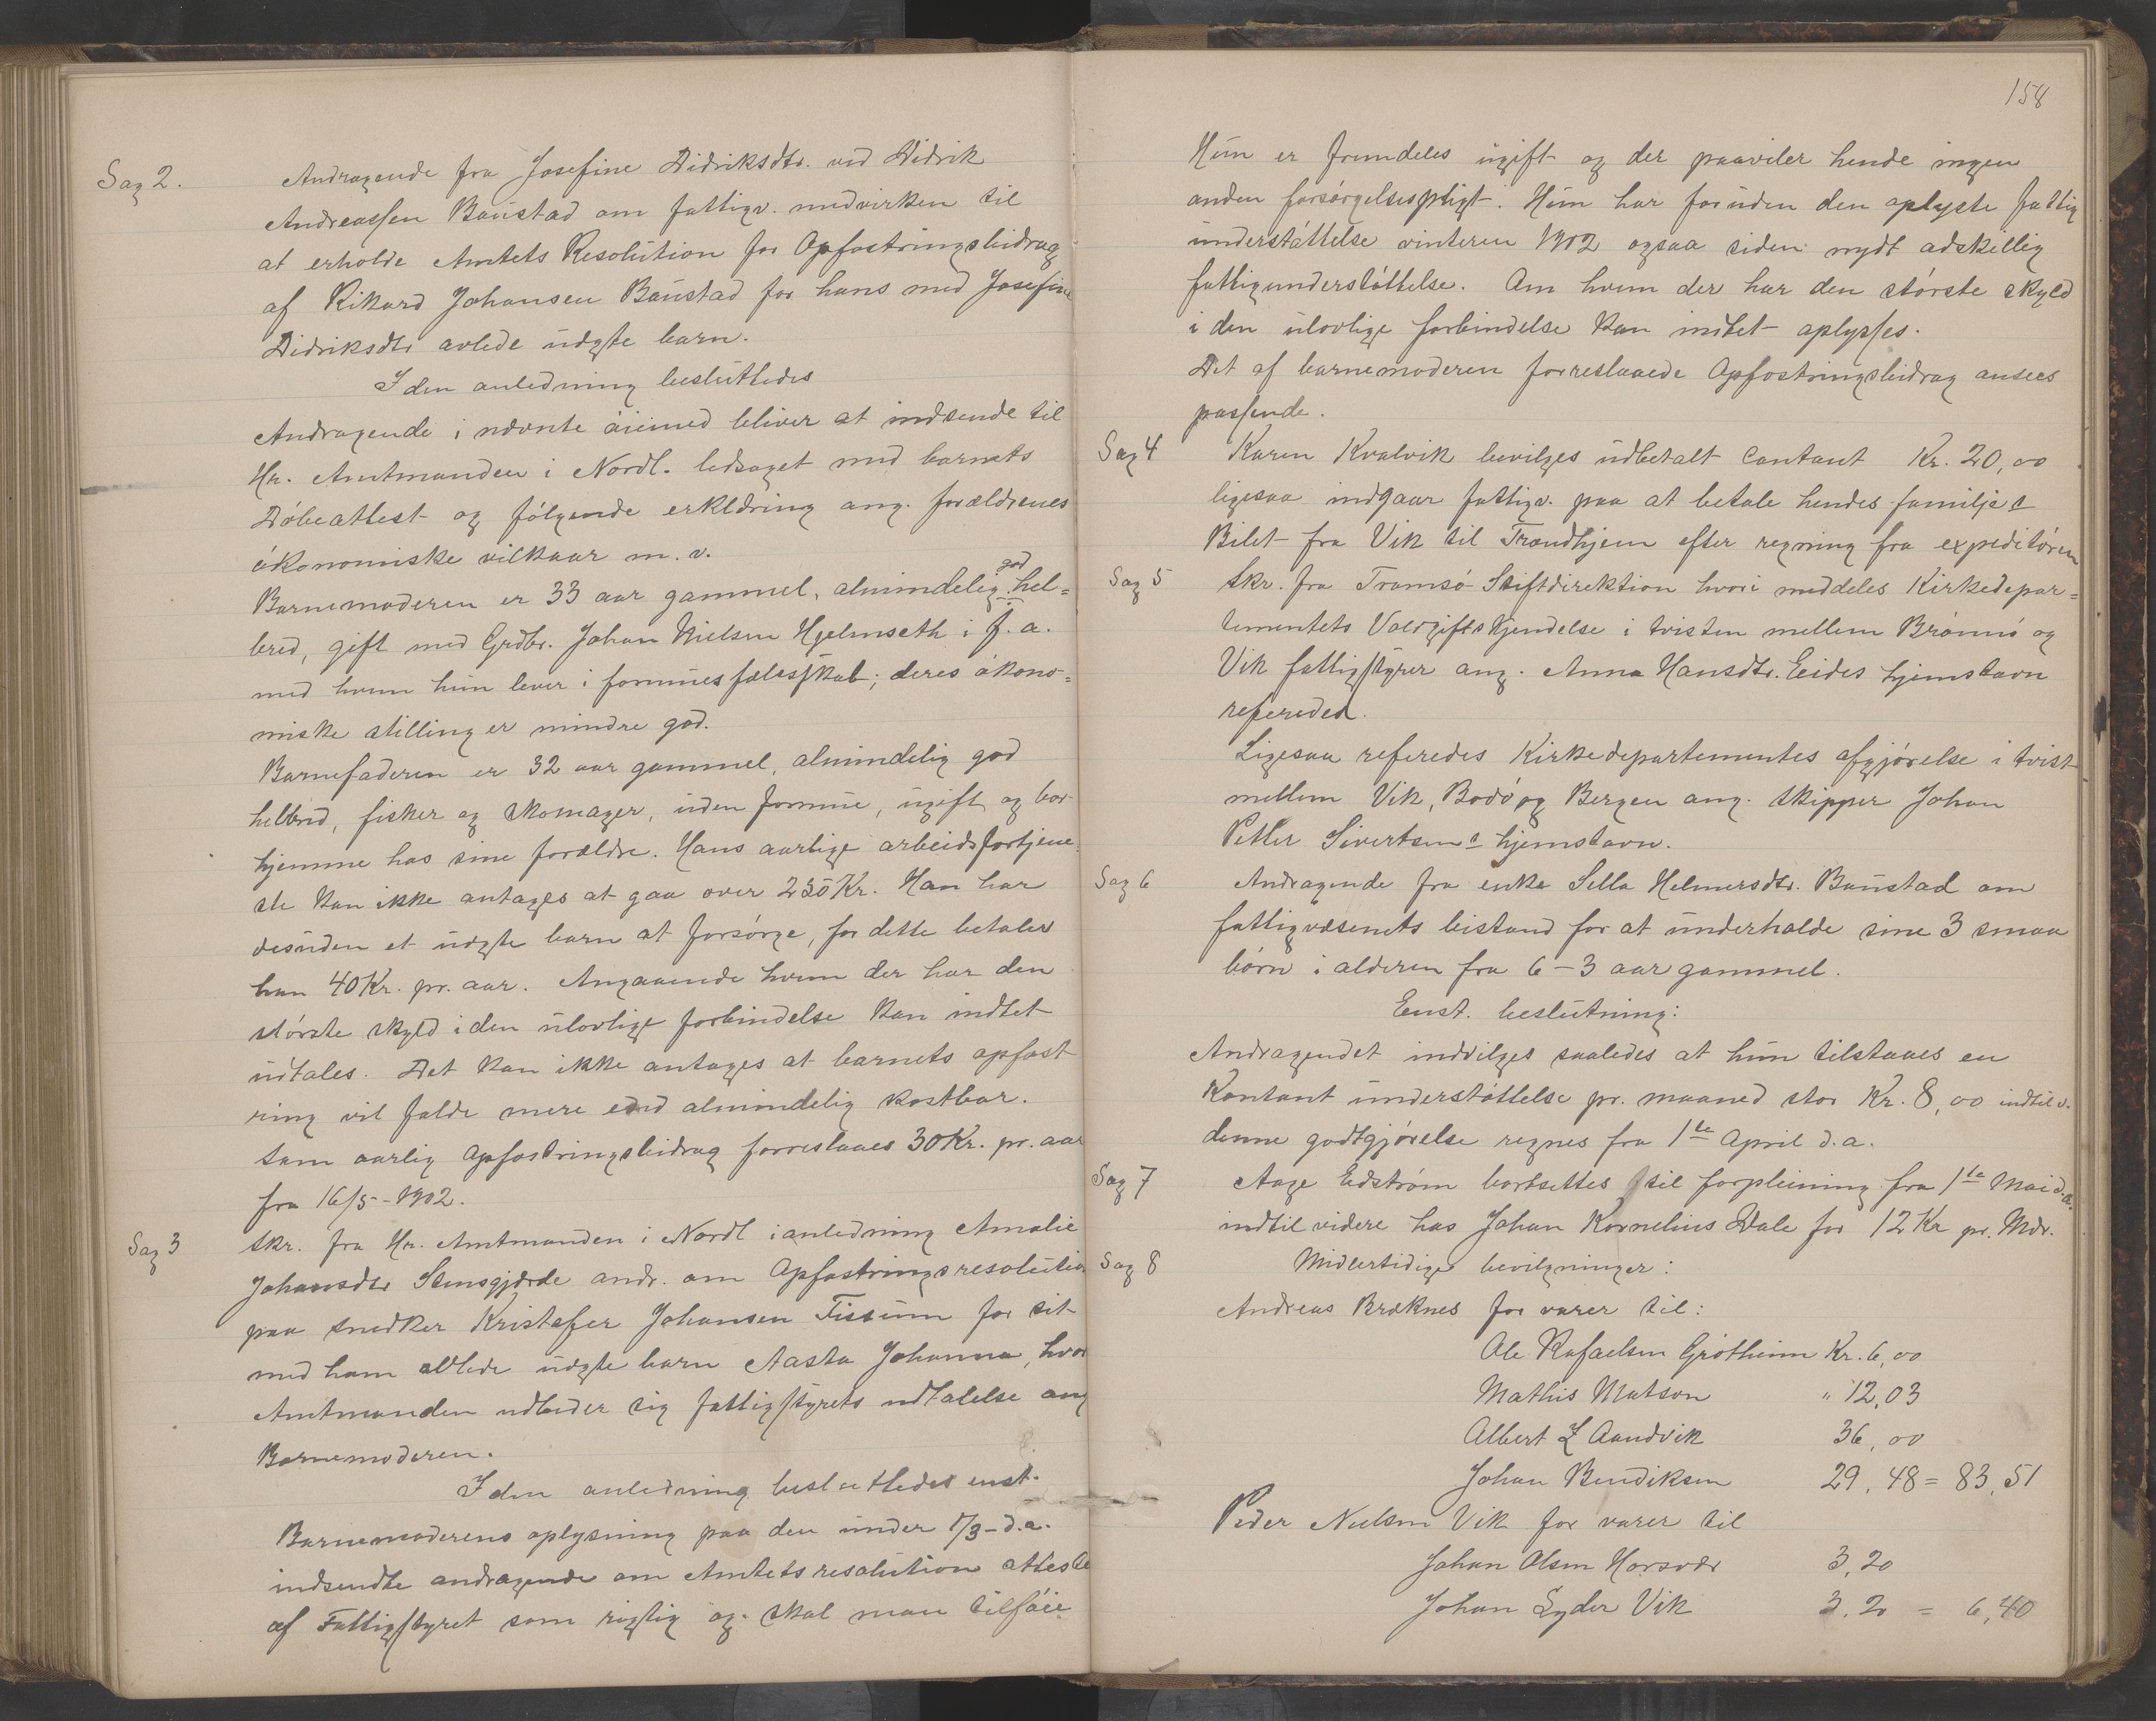 Sag 2. Andragende fra Josefine Didriksdtr. ved Didrik
Andreassen Baustad om fattigv. medvirken til
at erholde Amtets Resolution for Opfostringsbidrag
af Rikard Johansen Baustad for hans med Josefine
Didriksdtr avlede uægte barn.
I den anledning besluttedes
Andragende i nævnte øiemed bliver at indsende til
Hr. Amtmanden i Nordl. ledsaget med barnets
Døbeattest og følgende erklæring ang. forældrenes
økonomiske vilkaar m. v.
Barnemoderen er 33 aar gammel, almindelig god hel=
bred, gift med Grdbr. Johan Nielsen Hjelmseth i f. a.
med hvem hun lever i formuesfælesskab; deres økono=
miske stilling er mindre god.
Barnefaderen er 32 aar gammel, almindelig god
helbred, fisker og skomager, uden formue, ugift og bor
hjemme hos sine forældre. Hans aarlige arbeidsfortjene=
ste kan ikke antages at gaa over 250 Kr. Han har
desuden et uægte barn at forsørge, for dette betaler
han 40 Kr. pr. aar. Angaaende hvem der har den
største skyld i den ulovlige forbindelse kan indtet
udtales. Det kan ikke antages at barnets opfost
ring vil falde mere end almindelig kostbar.
Som aarlig Opfostringsbidrag forreslaaes 30 Kr. pr. aar
fra 16/5-1902.
Sag 3 Skr. fra Hr. Amtmanden i Nordl i anledning Amalie
Johansdtr Stensgjærde andr. om Opfostringsresolution
paa snedker Kristofer Johansen Tissum for sit
med ham avlede uægte barn Aasta Johanna, hvor
Amtmanden udbeder sig fattigstyrets udtalelse ang
Barnemoderen.
I den anledning besluttedes enst.
Barnemoderens oplysning paa den under 1/3-d.a.
indsendte andragende om Amtets resolution atteste
af Fattigstyret som rigtig og skal man tilføie
158
Hun er fremdeles ugift og der paaviler hende ingen
anden forsørgelsespligt. Hun har foruden den oplyste fattig
understøttelse vinteren 1902 ogsaa siden nydt adskillig
fattigunderstøttelse. Om hvem der har den største skyld
i den ulovlige forbindelse kan indtet oplyses.
Det af barnemoderen forreslaaede Opfostringsbidrag ansees
passende.
Sag 4 Karen Kvalvik bevilges udbetalt contant Kr. 20,00
ligesaa indgaar fattigv. paa at betale hendes familjes
Bilet fra Vik til Trondhjem efter regning fra expeditøren
Sag 5 Skr. fra Tromsø Stiftdirektion hvori meddeles Kirkedepar=
tementets Voldgiftskjendelse i tvisten mellem Brønnø og
Vik fattigstyrer ang. Anna Hansdtr. Eides hjemstavn
refereded.
Ligesaa referedes Kirkedepartementes afgjørelse i tvist
mellem Vik, Bodø og Bergen ang. Skipper Johan
Petter Sivertsens hjemstavn.
Sag 6 Andragende fra enke Sella Helmersdtr. Baustad om
fattigvæsenets bistand for at underholde sine 3 smaa
børn i alderen fra 6-3 aar gammel.
Enst. beslutning:
Andragendet indvilges saaledes at hun tilstaaes en
Kontant understøttelse pr. maaned stor Kr. 8,00 indtil v.
denne godtgjørelse regnes fra 1te April d.a.
Sag 7 Aage Edstrøm bortsettes til forpleining fra 1te Mai d.a.
indtil videre hos Johan Kornelius Dale for 12 Kr pr. Mdr.
Sag 8 Midlertidige bevilgninger:
Andreas Bræknes for varer til:
Ole Rafaelsen Grøtheim Kr. 6,00
Mathis Matson " 12,03
Albert Z Aandvik 36,00
Johan Bendiksen 29,48 = 83,51
Peder Nielsen Vik for varer til
Johan Olsen Horsvær 3,20
Johan Lyder Vik 3,20 = 6,40